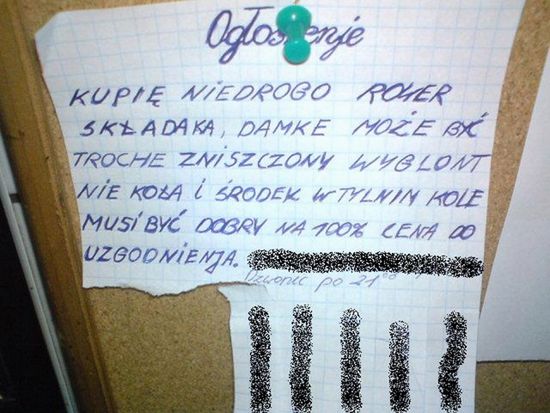 Ogłoszenie
KUPIĘ NIEDROGO ROWER
SKŁADAKA, DAMKE MOŻE BYĆ
TROCHE ZNISZCZONY WYGLONT
NIE KOŁA I ŚRODEK W TYLNIM KOLE
MUSI BYĆ DOBRY NA 100% CENA DO
UZGODNIENJA.
Dzwonić po 21⁰⁰